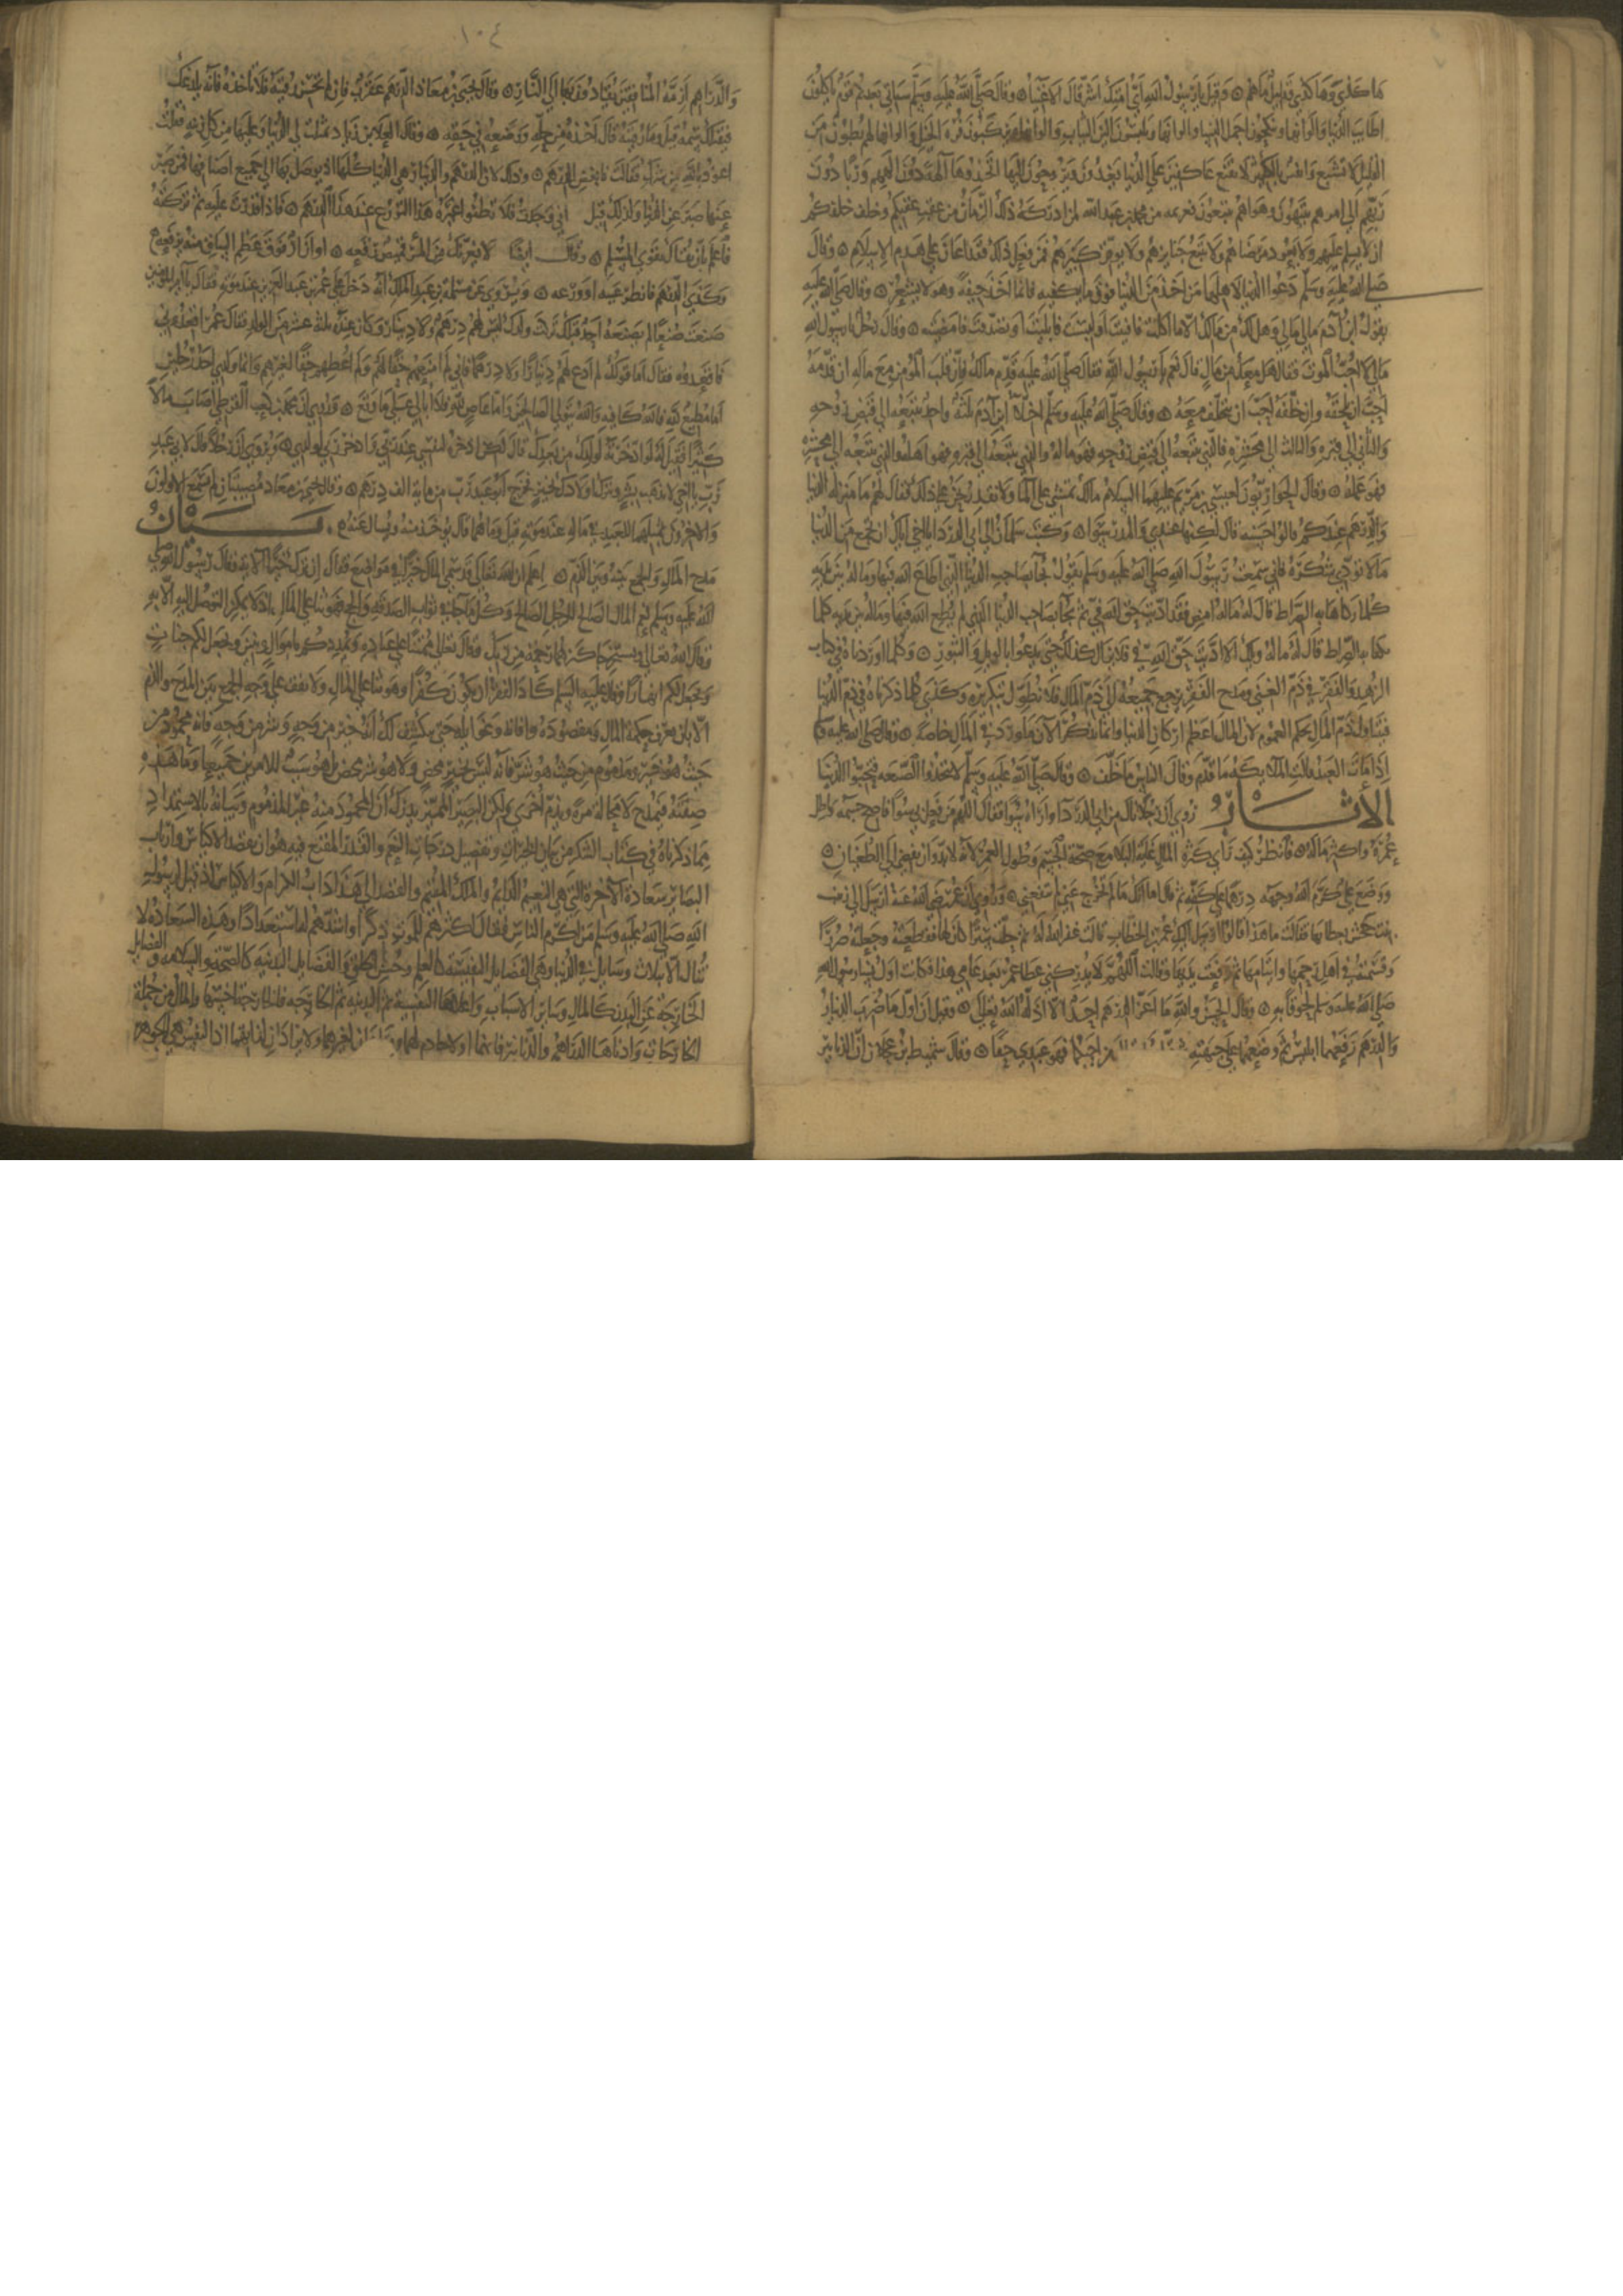 هكذى وهكذى وقليل ما هم وقيل يا رسول الله اي امتك اشر قال الاغنيا وقال صلى الله عليه وسلم سياتي بعدكم قوم ياكلون
اطايب الدنيا والوانها وينكحون اجمل النسا والوانها ويلبسون الين الثياب والوانها ويركبون فره الخيل والوانها لهم بطون من
القليل لا تشبع وانفس بالكثير لا تقنع عاكفين على الدنيا يغدون ويروحون اليها اتخذوها الهة دون الههم وربا دون
ربهم الى امرهم ينتهون وهواهم يتبعون فعزيمة من محمد بن عبد الله لمن ادركه ذلك الزمان من عقب عقبكم وخلف خلفكم
ان لا يسلم عليهم ولا يعود مرضاهم ولا يتبع جنايزهم ولا يوقر كبيرهم فمن فعل ذلك فقد اعان على هدم الاسلام وقال
صلى الله عليه وسلم دعوا الدنيا لاهلها من اخذ من الدنيا فوق ما يكفيه فانما اخذ جيفة وهو لا يشعر وقال صلى الله عليه
يقول ابن ادم مالي مالي وهل لك من مالك الا ما اكلت فافنيت او لبست فابليت او تصدقت فامضيت وقال رجل يا رسول الله
مالي لا احب الموت فقال هل معك من مال قال نعم يا رسول الله فقال صلى الله عليه قدم مالك فان قلب المؤمن مع ماله ان قدمه
احب ان يلحقه وان خلفه احب ان يتخلف معه وقال صلى الله عليه وسلم اخلا ابن ادم ثلثة واحد يتبعه الى قبض روحه
والثاني الى قبره والثالث الى محشره فالذي يتبعه الى قبض روحه فهو ماله والذي يتبعه الى قبره فهو اهله والذي يتبعه الى محشره
فهو عمله وقال الحواريون لعيسى بن مريم عليهما السلام مالك تمشي على الما ولا نقدر نحن على ذلك فقال لهم ما منزلة الدنيا
والدرهم عندكم قالوا حسنه قال لكنها عندي والمدر سوا وكتب سلمان الى ابي الدردا يا اخي اياك ان تجمع من الدنيا
ما لا تودي شكره فاني سمعت رسول الله صلى الله عليه وسلم يقول يجآ بصاحب الدنيا الذي اطاع الله فيها وماله بين يديه
كلما تكفا به الصراط قال له ماله امض فقد اديت حق الله في ثم يجآ بصاحب الدنيا الذي لم يطع الله فيها وماله بين يديه كلما
تكفا به الصراط قال له ماله ويلك الا اديت حق الله في فلا يزال كذلك حتى يدعوا بالويل والثبور وكلما اوردناه في كتاب
الزهد والفقر في ذم الغنى ومدح الفقر يرجع جميعه الى ذم المال فلا نطول بتكريره وكذى كلما ذكرناه في ذم الدنيا
فيتناول ذم المال بحكم العموم لان المال اعظم اركان الدنيا وانما نذكر الان ما ورد في المال خاصة وقال صلى الله عليه وسلم
اذا مات العبد قالت الملايكه ما قدم وقال الناس ما خلف وقال صلى الله عليه وسلم لا تتخذوا الضيعه فتحبوا الدنيا
الاثار روي ان رجلا نال من ابي الدردآ واراه سوا فقال اللهم من فعل بي سوا فاصح جسمه واطل
عمره واكثر ماله فانظر كيف راى كثرة المال غاية البلا مع صحة الجسم وطول العمر لانه لابد وان يفضي الى الطغيان
ووضع علي كرم الله وجهه درهما على كفه ثم قال اما انك ما لم تخرج عني لم تنفعني وروي ان عمر رضي الله عنه ارسل الى زينب
بنت جحش بعطايها فقالت ما هذا قالوا ارسل اليك عمر بن الخطاب قالت غفر الله له ثم حلت سترا كان لها فقطعته وجعلته صررا
وقسمته في اهل رحمها وايتامها ثم رفعت يديها وقالت اللهم لا يدركني عطا عمر بعد عامي هذا فكانت اول نسا رسول الله
صلى الله عليه وسلم لحوقا به وقال الحسن والله ما اعز الدرهم احد الا اذله الله تعالى وقيل ان اول ما ضرب الدينار
والدرهم رفعهما ابليس ثم وضعهما على جبهته من احبكما فهو عبدي حقا وقال سميط بن عجلان ان الدنانير
١٠٤
والدراهم ازمة المنافقين يقادون بها الى النار وقال يحيى بن معاذ الدرهم عقرب فان لم تحسن رقيته فلا تاخذه فانه ان لدغك
قتلك سمه قيل وما رقيته قال اخذه من حله ووضعه في حقه وقال العلا بن زياد تمثلت لي الدنيا وعليها من كل زينه فقلت
اعوذ بالله من شرك فقالت فابغض الدرهم وذلك لان الدرهم والدينار هي الدنيا كلها اذ يوصل بها الى جميع اصنافها فمن صبر
عنها صبر عن الدنيا ولذلك قيل اني وجدت فلا تظنوا غيره هذا التورع عند هذا الدرهم فاذا قدرت عليه ثم تركته
فاعلم بان تقاك تقوى المسلم وقال ايضا لا يغرنك من المرء قميص رقعه او ازار فوق عظم الساق منه رفعه
وكذى الدرهم فانظر غيه او ورعه ويروى عن مسلمة بن عبد الملك انه دخل على عمر بن عبد العزيز عند موته فقال يا امير المومنين
صنعت صنيعا لم يصنعه احد قبلك تركت ولدك ليس لهم درهم ولا دينار وكان عنده ثلثة عشر من الولد فقال عمر اقعدوني
فاقعدوه فقال اما قولك لم ادع لهم دينارا ولا درهما فاني لم امنعهم حقا لهم ولم اعطهم حقا لغيرهم وانما ولدي احد رجلين
اما مطيع لله فالله كافيه والله يتولى الصالحين واما عاص لله فلا ابالي على ما وقع وروي ان محمد بن كعب القرظي اصاب مالا
كثيرا فقيل له لو ادخرته لولدك من بعدك قال لكني ادخره لنفسي عند ربي وادخر ربي لولدي ويروى ان رجلا قال لابي عبد
رب يا اخي لا تذهب بشر وتترك اولادك بخير فخرج ابو عبد رب من ماية الف درهم وقال يحيى بن معاذ مصيبتان لم يسمع الاولون
والاخرون بمثلهما للعبد في ماله عند موته قيل وما هما قال يوخذ منه ويسال عنه بيان
مدح المال والجمع بينه وبين الذم اعلم ان الله تعالى قد سمى المال خيرا في مواضع فقال ان ترك خيرا الايه وقال رسول الله صلى
الله عليه وسلم نعم المال الصالح للرجل الصالح وكل ما جآ في ثواب الصدقة والحج فهو ثنا على المال اذ لا يمكن التوصل اليه الا به
وقال الله تعالى ويستخرجا كنزهما رحمة من ربك وقال تعالى ممتنا على عباده ويمددكم باموال وبنين ويجعل لكم جنات
ويجعل لكم انهارا وقال عليه السلم كاد الفقر ان يكون كفرا وهو ثنا على المال ولا تقف على وجه الجمع بين المدح والذم
الا بان تعرف حكمة المال ومقصوده وافاته وغوايله حتى ينكشف لك انه خير من وجه وشر من وجه فانه محمود من
حيث هو خير ومذموم من حيث هو شر فانه ليس بخير محض ولا هو شر محض بل هو سبب للامرين جميعا وما هذه
صفته فيمدح لا محالة مرة ويذم اخرى ولكن البصير المميز يدرك ان المحمود منه غير المذموم وبيانه بالاستمداد
مما ذكرناه في كتاب الشكر من بيان الخيرات وتفصيل درجات النعم والقدر المقنع فيه هو ان مقصد الاكياس وارباب
البصائر سعادة الآخرة التي هي النعيم الدايم والملك المقيم والقصد الى هذا داب الكرام والاكياس اذ قيل لرسول
الله صلى الله عليه وسلم من اكرم الناس فقال اكثرهم للموت ذكرا واشدهم له استعدادا وهذه السعادة لا
تنال الا بثلاث وسايل في الدنيا وهي الفضايل النفسيه كالعلم وحسن الخلق والفضايل البدنيه كالصحة والسلامه والفضايل
الخارجة عن البدن كالمال وساير الاسباب واعلاها النفسية ثم البدنيه ثم الخارجه فالخارجة اخسها والمال من جملة
الخارجات وادناها الدراهم والدنانير فانهما لا خادم لهما ومرادان لغيرهما ولا يرادان لذاتهما اذ النفس هي الجوهر